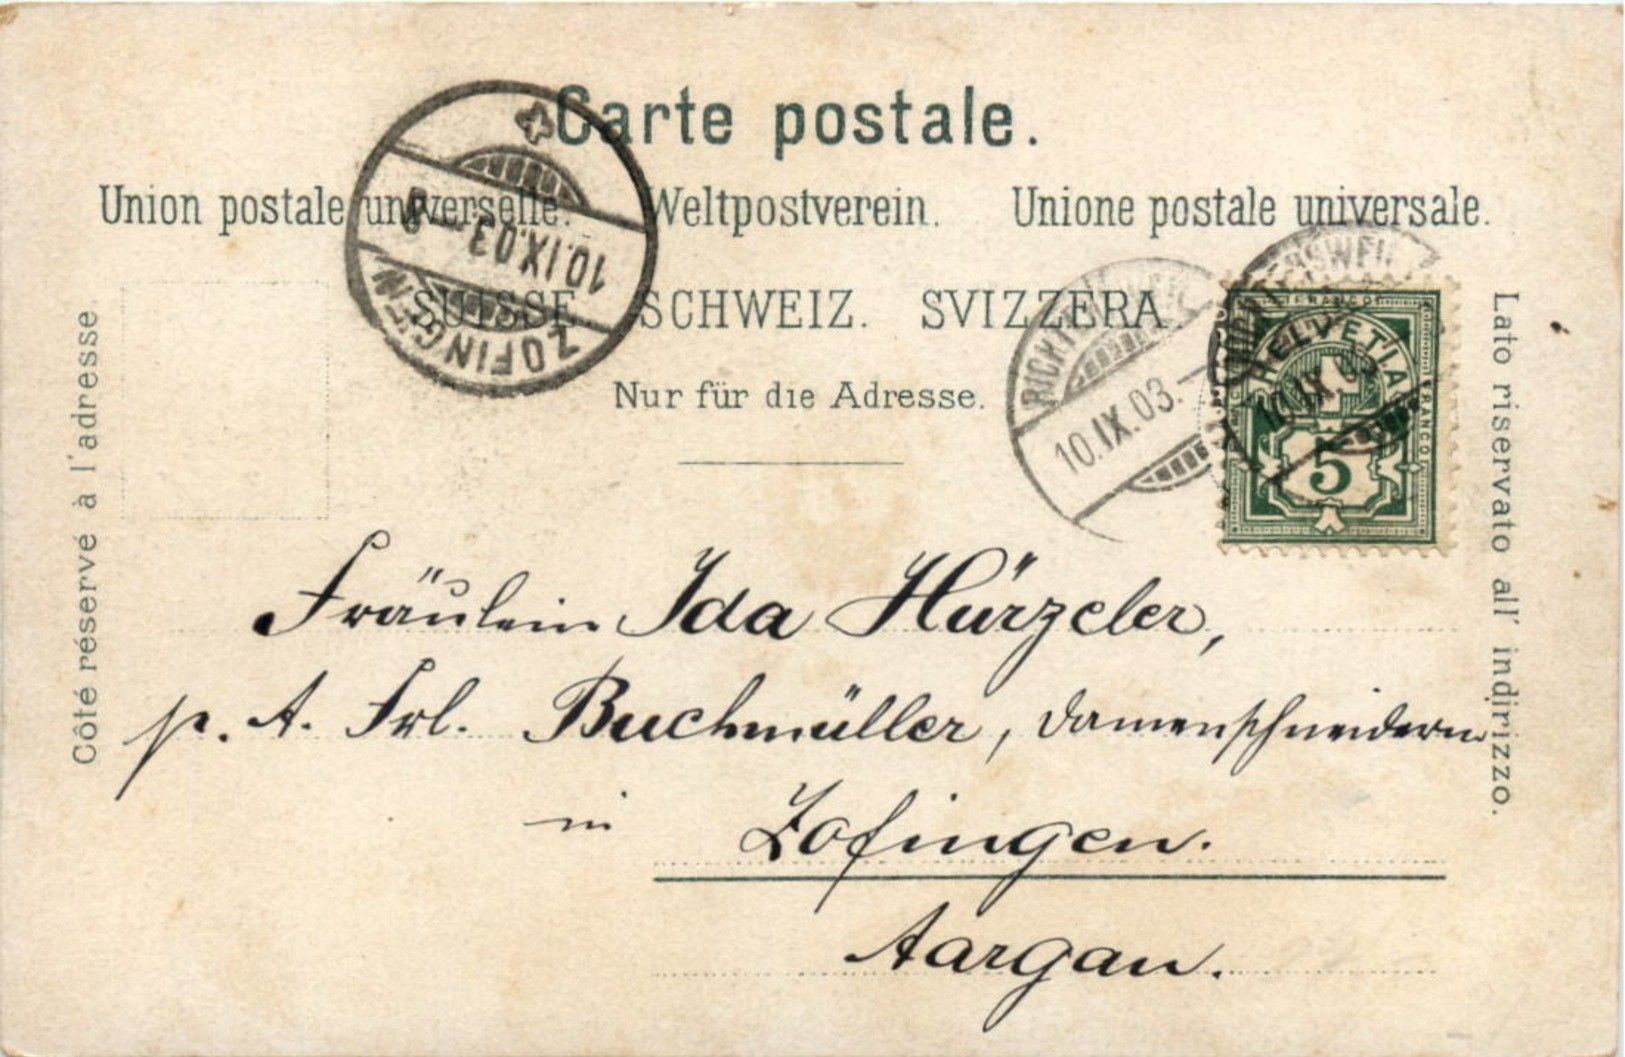 Carte postale.
Union postale universelle. Weltpostverein. Unione postale universale.
SUISSE. SCHWEIZ. SVIZZERA.
Nur für die Adresse.
Côté réservé à l'adresse.
Lato riservato all' indirizzo.
ZOFINGEN
10.IX.03
RICHTERSWEIL
10.IX.03.
RICHTERSWEIL
10.IX.03
FRANCO
HELVETIA
FRANCO
5
Fräulein Ida Hürzeler,
p. A. Frl. Buchmüller, Damenschneiderin
in Zofingen.
Aargau.